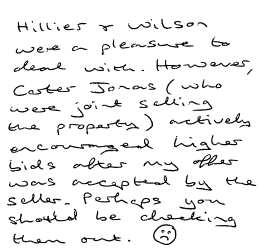 Hillier & Wilson
were a pleasure to
deal with. However,
Carter Jonas (who
were joint selling
the property) actively
encouraged higher
bids after my offer
was accepted by the
seller. Perhaps you
should be checking
them out. ☹